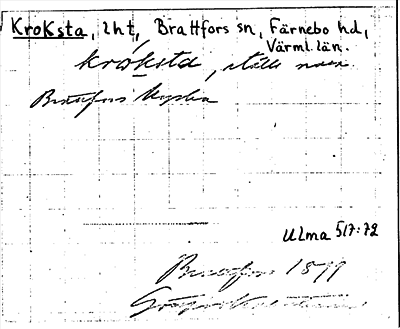 Kroksta, lht, Brattfors sn, Färnebo hd,
Värml. län.
kroksta, ställe nära
Brattfors kyrka
Ulma 517:72
Brattfors 1899